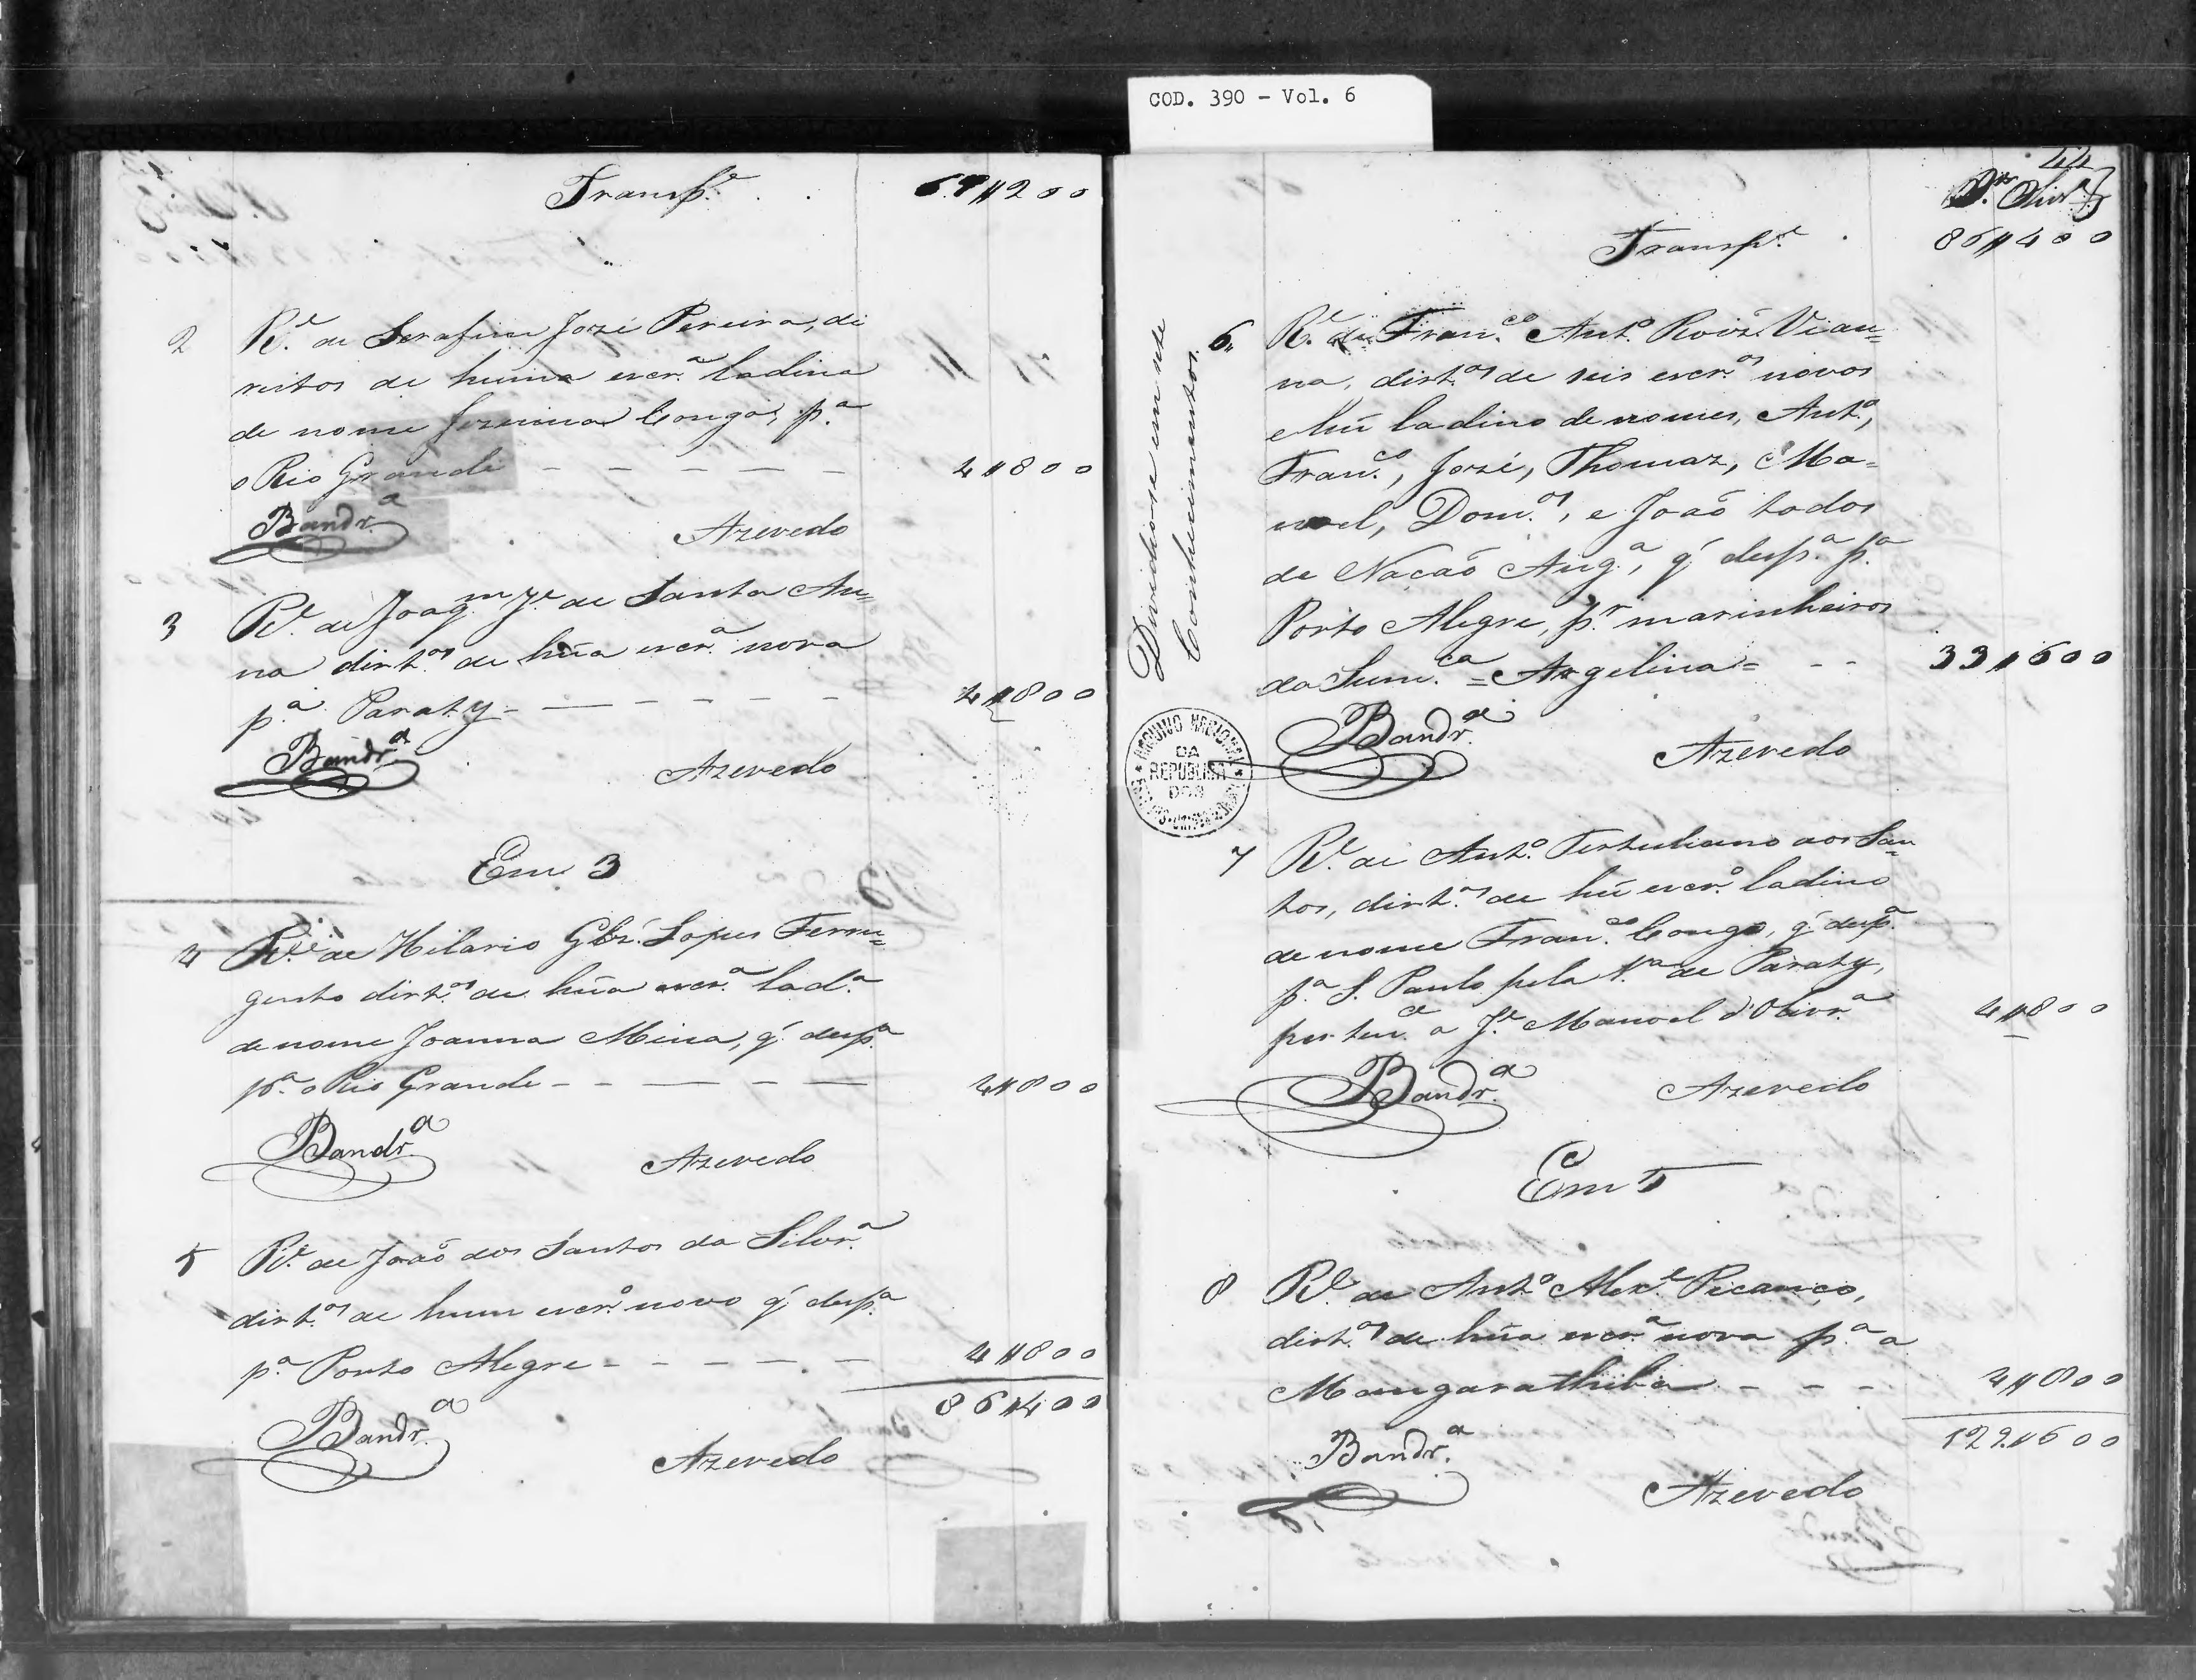 COD. 390 - Vol. 6
Transp.e 67$200
2 R.e de Serafim Jozé Pereira, di
reitos de huma escr.a ladina
de nome Jozefina Congo, p.a
o Rio Grande 4$800
Bandr.a Azevedo
3 R.e de Joaq.m J.e de Santa An=
na dirt.os de hũa escr.a nova
p.a Paraty 4$800
Bandr.a Azevedo
Em 3
4 R.e de Hilario Glz. Lopes Ferru=
gento dirt.os de hũa escr.a lad.a
de nome Joanna Mina, q' desp.a
p.a o Rio Grande 4$800
Bandr.a Azevedo
5 R.e de João dos Santos da Silvr.a
dirt.os de hum escr.o novo q' desp.a
p.a Porto Alegre 4$800
86$400
Bandr.a Azevedo
44
Transp.e 86$400
Dividiose em sete
Conhecimentos.
6 R.e de Fran.co Ant.o Roiz Vian=
na, dirt.os de seis escr.os novos
e hũ ladino de nomes, Ant.o,
Fran.co, Jozé, Thomaz, Ma=
noel, Dom.os, e João todos
de Nação Ang.a, q' desp.a p.a
Porto Alegre, p.r marinheiros
da Sum.ca = Angelina = 33$600
Bandr.a Azevedo
ARQUIVO NACIONAL
DA
REPUBLICA
DOS
7 R.e de Ant.o Tertuliano dos San=
tos, dirt.os de hũ escr.o ladino
de nome Fran.co Congo, q' desp.a
p.a S. Paulo pela V.a de Paraty,
perten.ce a J.e Manoel d'Olivr.a 4$800
Bandr.a Azevedo
Em 5
8 R.e de Ant.o Alex.e Picanço,
dirt.os de hũa escr.a nova p.a a
Mangarathiba 4$800
129$600
Bandr.a
Azevedo